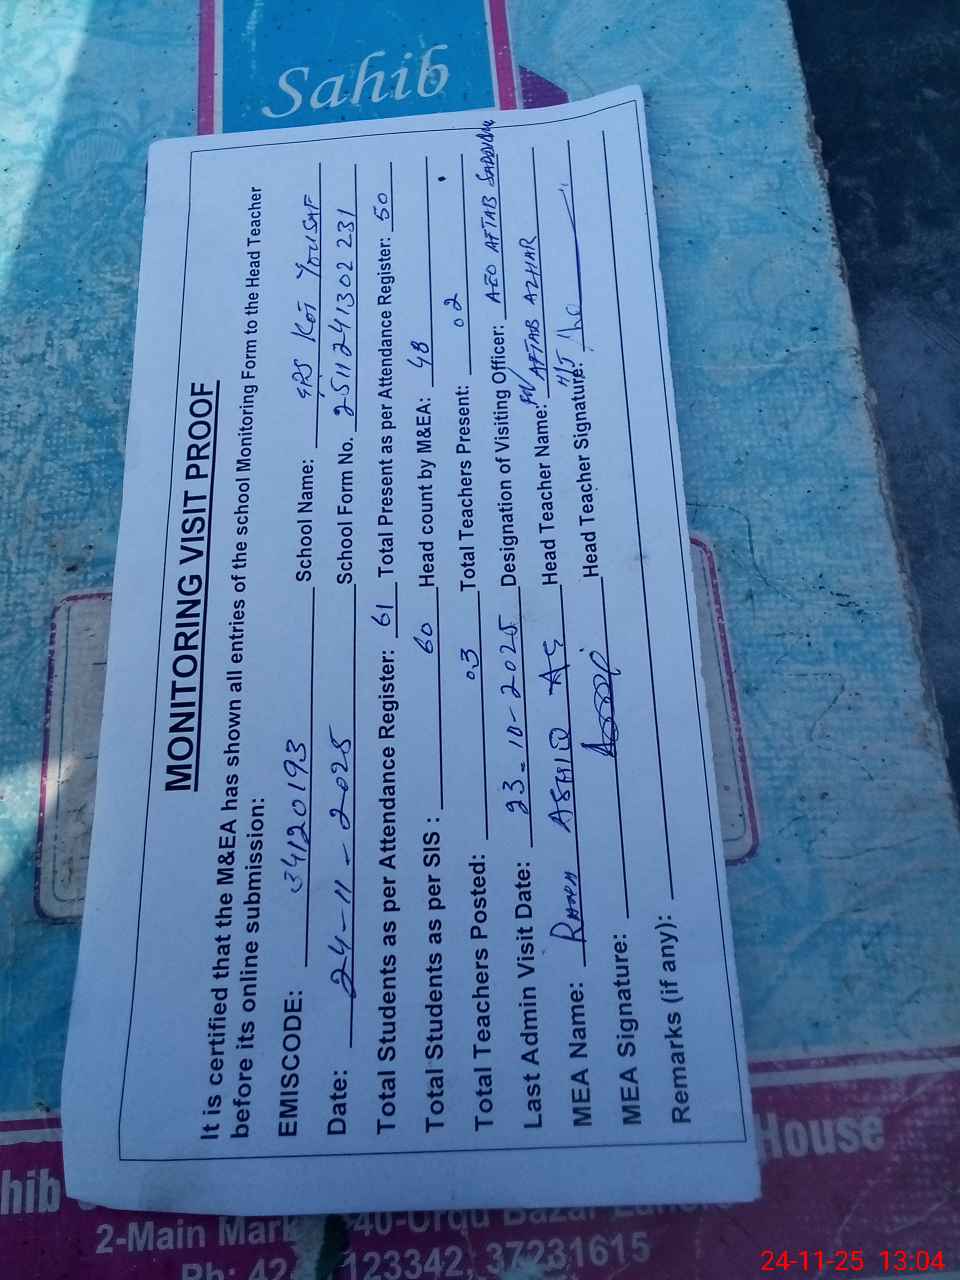 Sahib
MONITORING VISIT PROOF
It is certified that the M&EA has shown all entries of the school Monitoring Form to the Head Teacher
before its online submission:
EMISCODE: 34120193 School Name: GPS Kot Yousaf
Date: 24-11-2025 School Form No. 2511241302231
Total Students as per Attendance Register: 61 Total Present as per Attendance Register: 50
Total Students as per SIS : 60 Head count by M&EA: 48
Total Teachers Posted: 03 Total Teachers Present: 02
Last Admin Visit Date: 23-10-2025 Designation of Visiting Officer: AEO AFTAB
MEA Name: ASHIQ Head Teacher Name: AFTAB AZHAR
MEA Signature: Head Teacher Signature:
Remarks (if any):
hib House
2-Main Mark 40-Urdu Bazar
Ph: 42 123342, 37231615
24-11-25 13:04